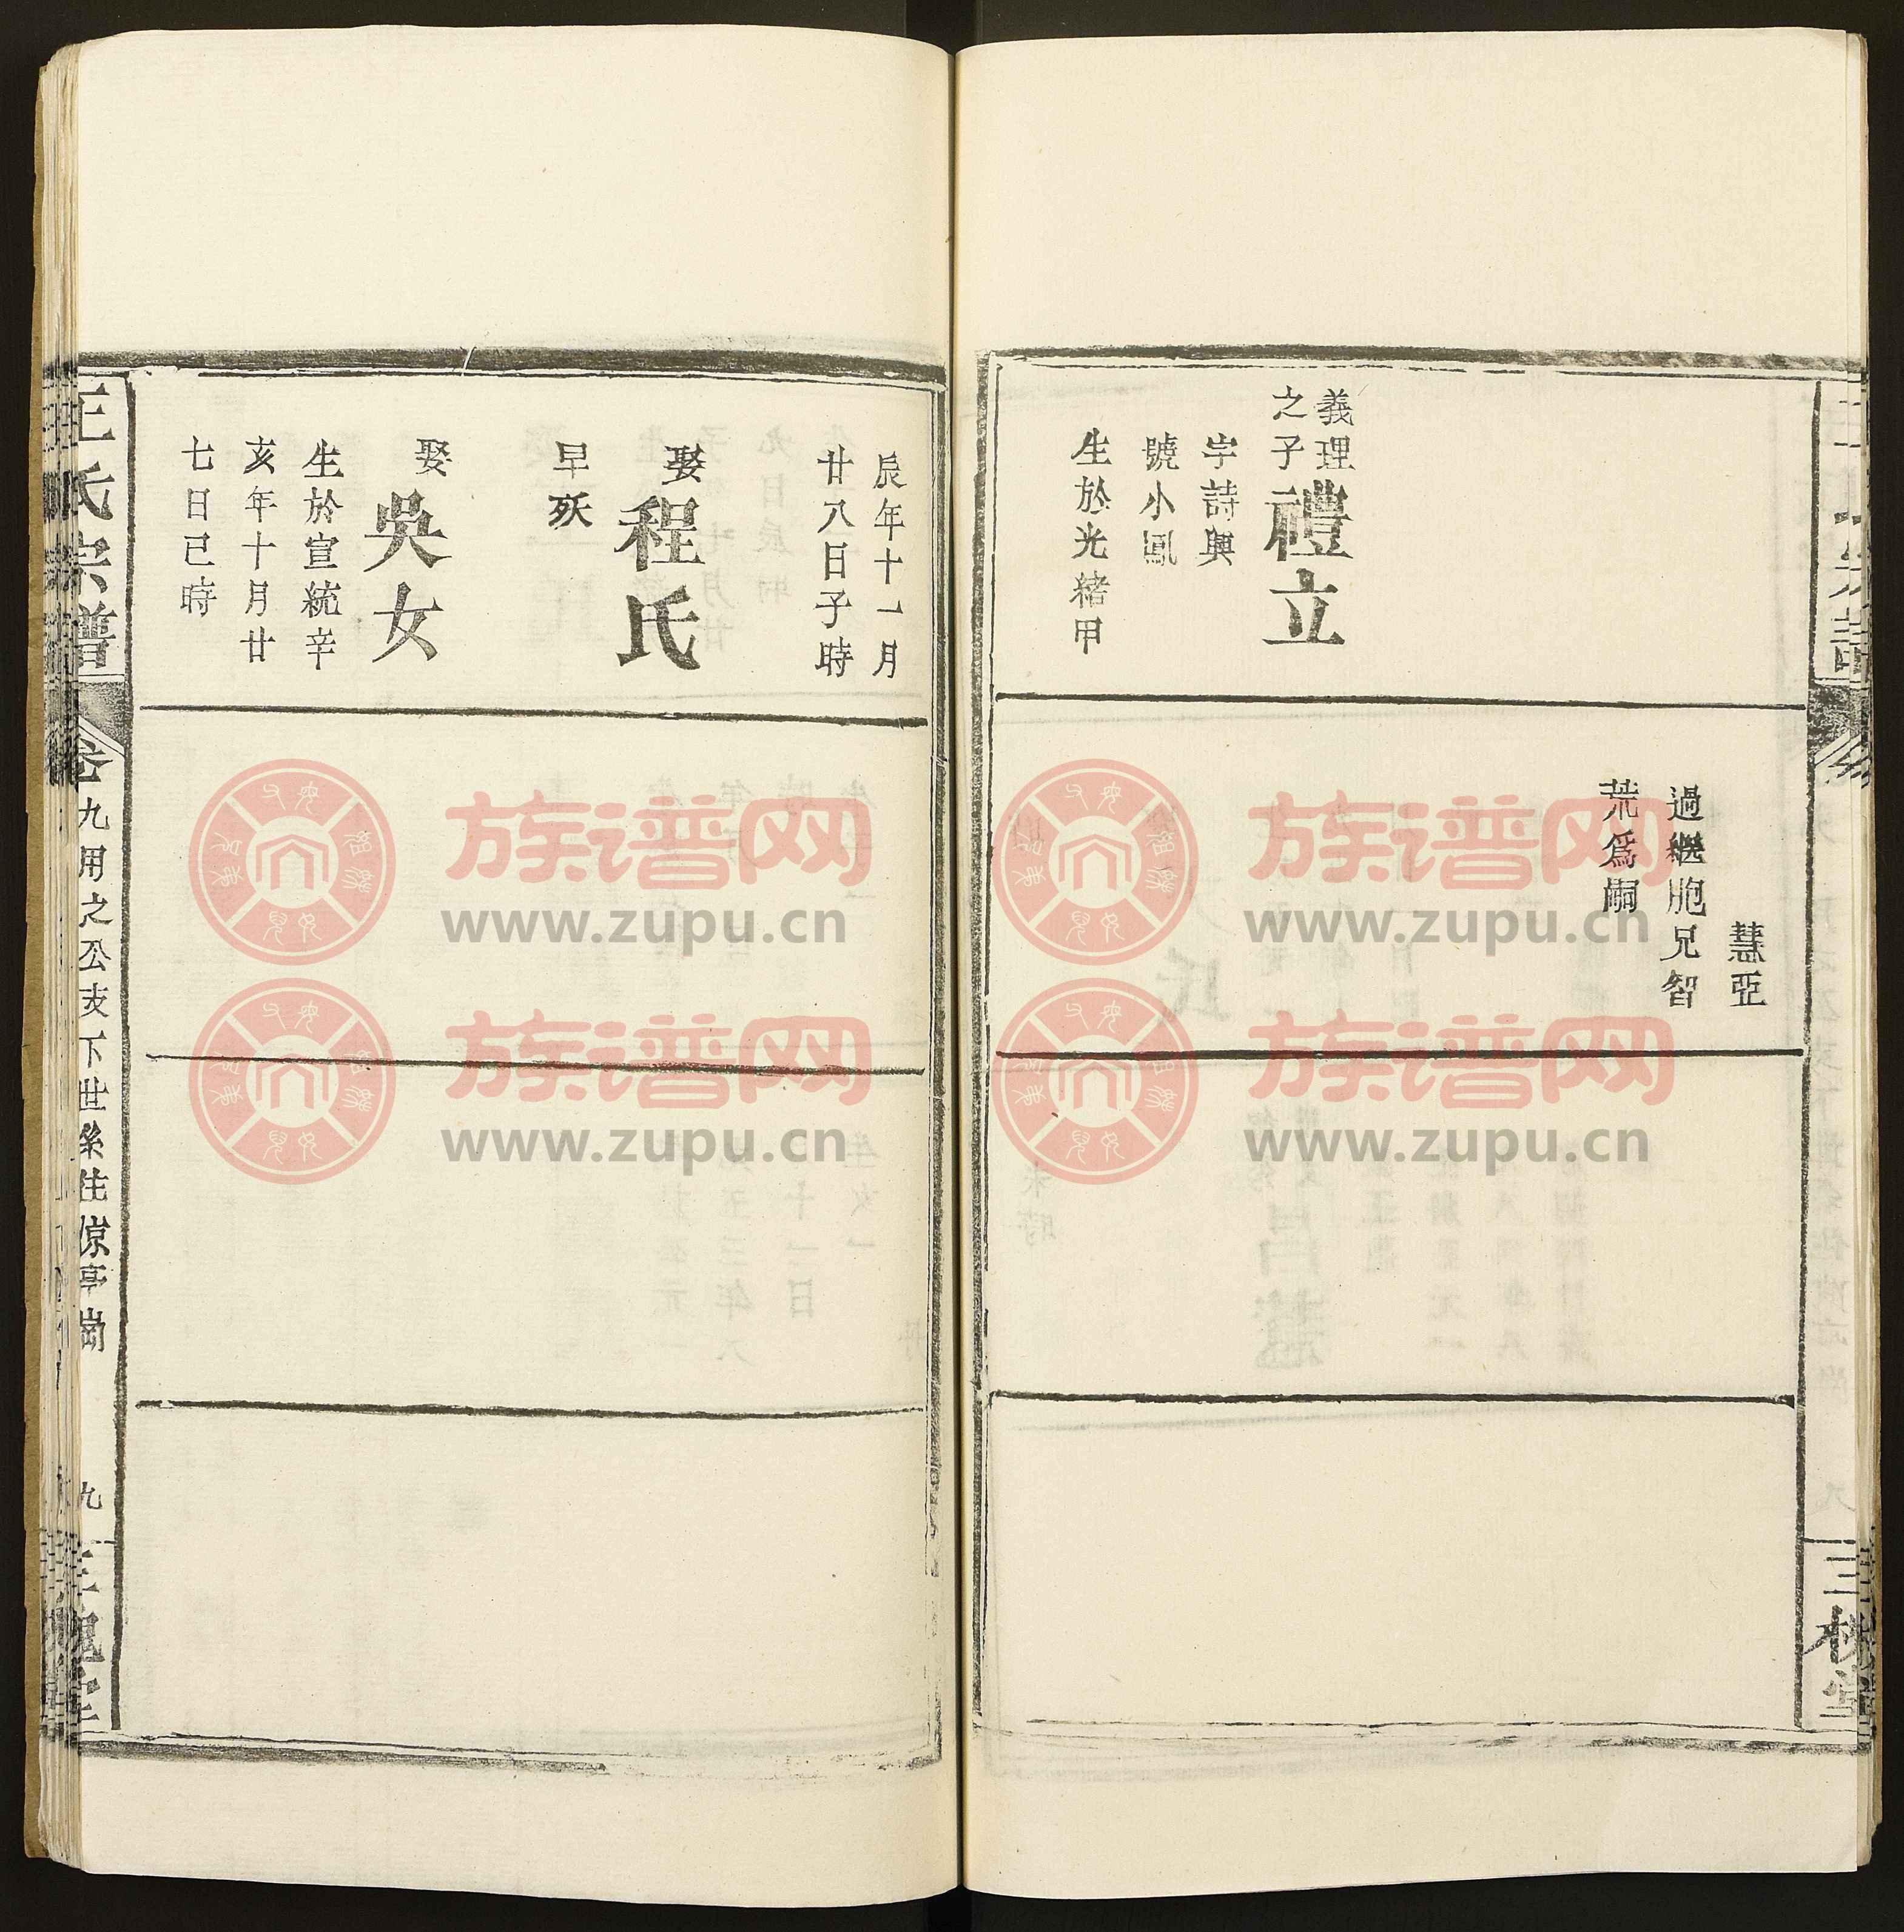 慧亞
過繼胞兄智
荒爲嗣
義理
之子
禮立
字詩興
號小鳳
生於光緒甲
辰年十一月
廿八日子時
娶程氏
早殀
娶吳女
生於宣統辛
亥年十月廿
七日巳時
王氏宗譜
卷九用之公支下世系住倞亭崗
九
三槐堂
三槐堂
族谱网
www.zupu.cn
族谱网
www.zupu.cn
族谱网
www.zupu.cn
族谱网
www.zupu.cn